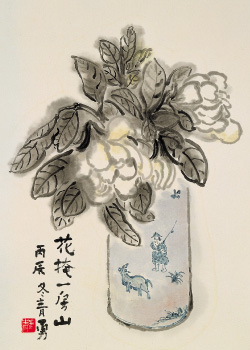 花掩一房山
丙辰冬青勇